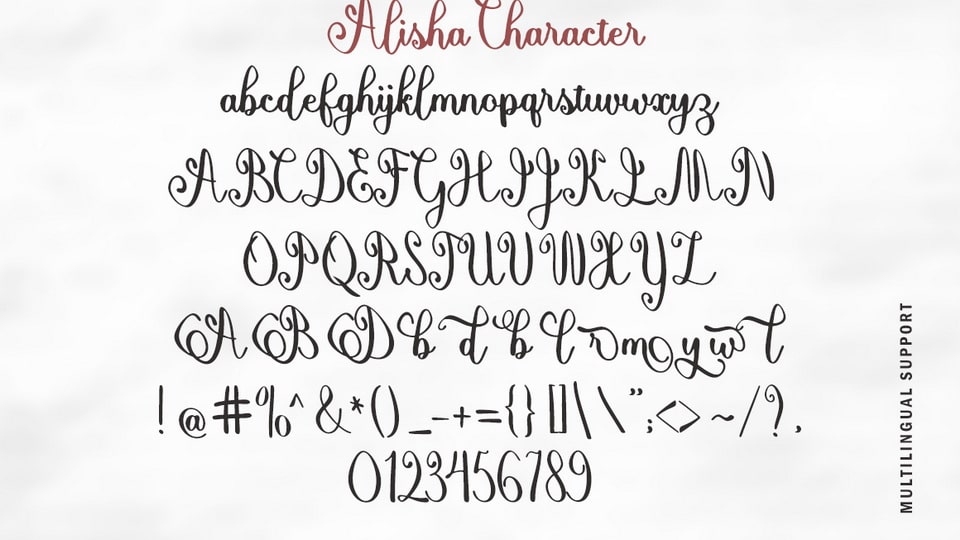 Alisha Character
abcdefghijklmnopqrstuvwxyz
ABCDEFGHIJKLMN
OPQRSTUVWXYZ
A B D b d b l r m o y w t
! @ # % ^ & * ( ) _ - + = { } [ ] | \ " ; < > ~ / ? ,
0123456789
MULTILINGUAL SUPPORT